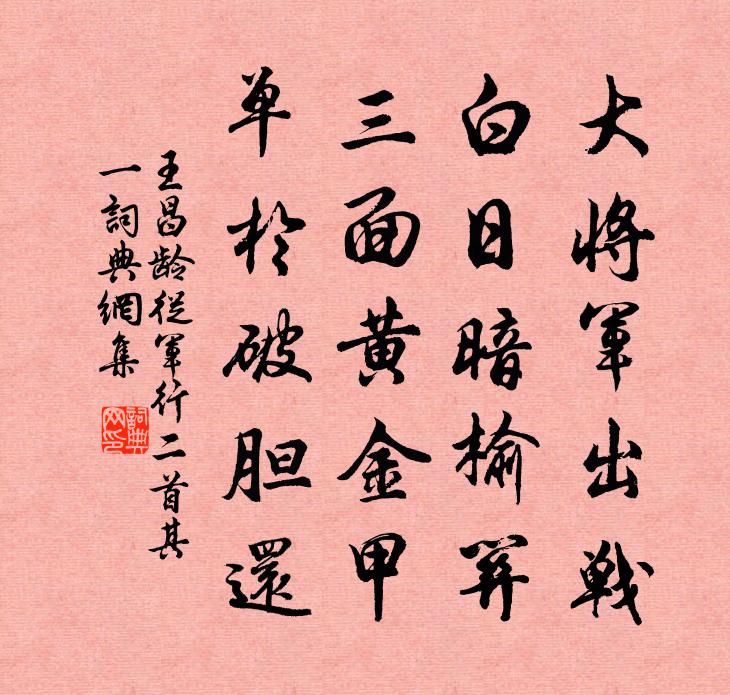 大将軍出戰
白日暗榆關
三面黄金甲
单於破胆還
王昌龄從軍行二首其
一詞典網集
詞典
网印